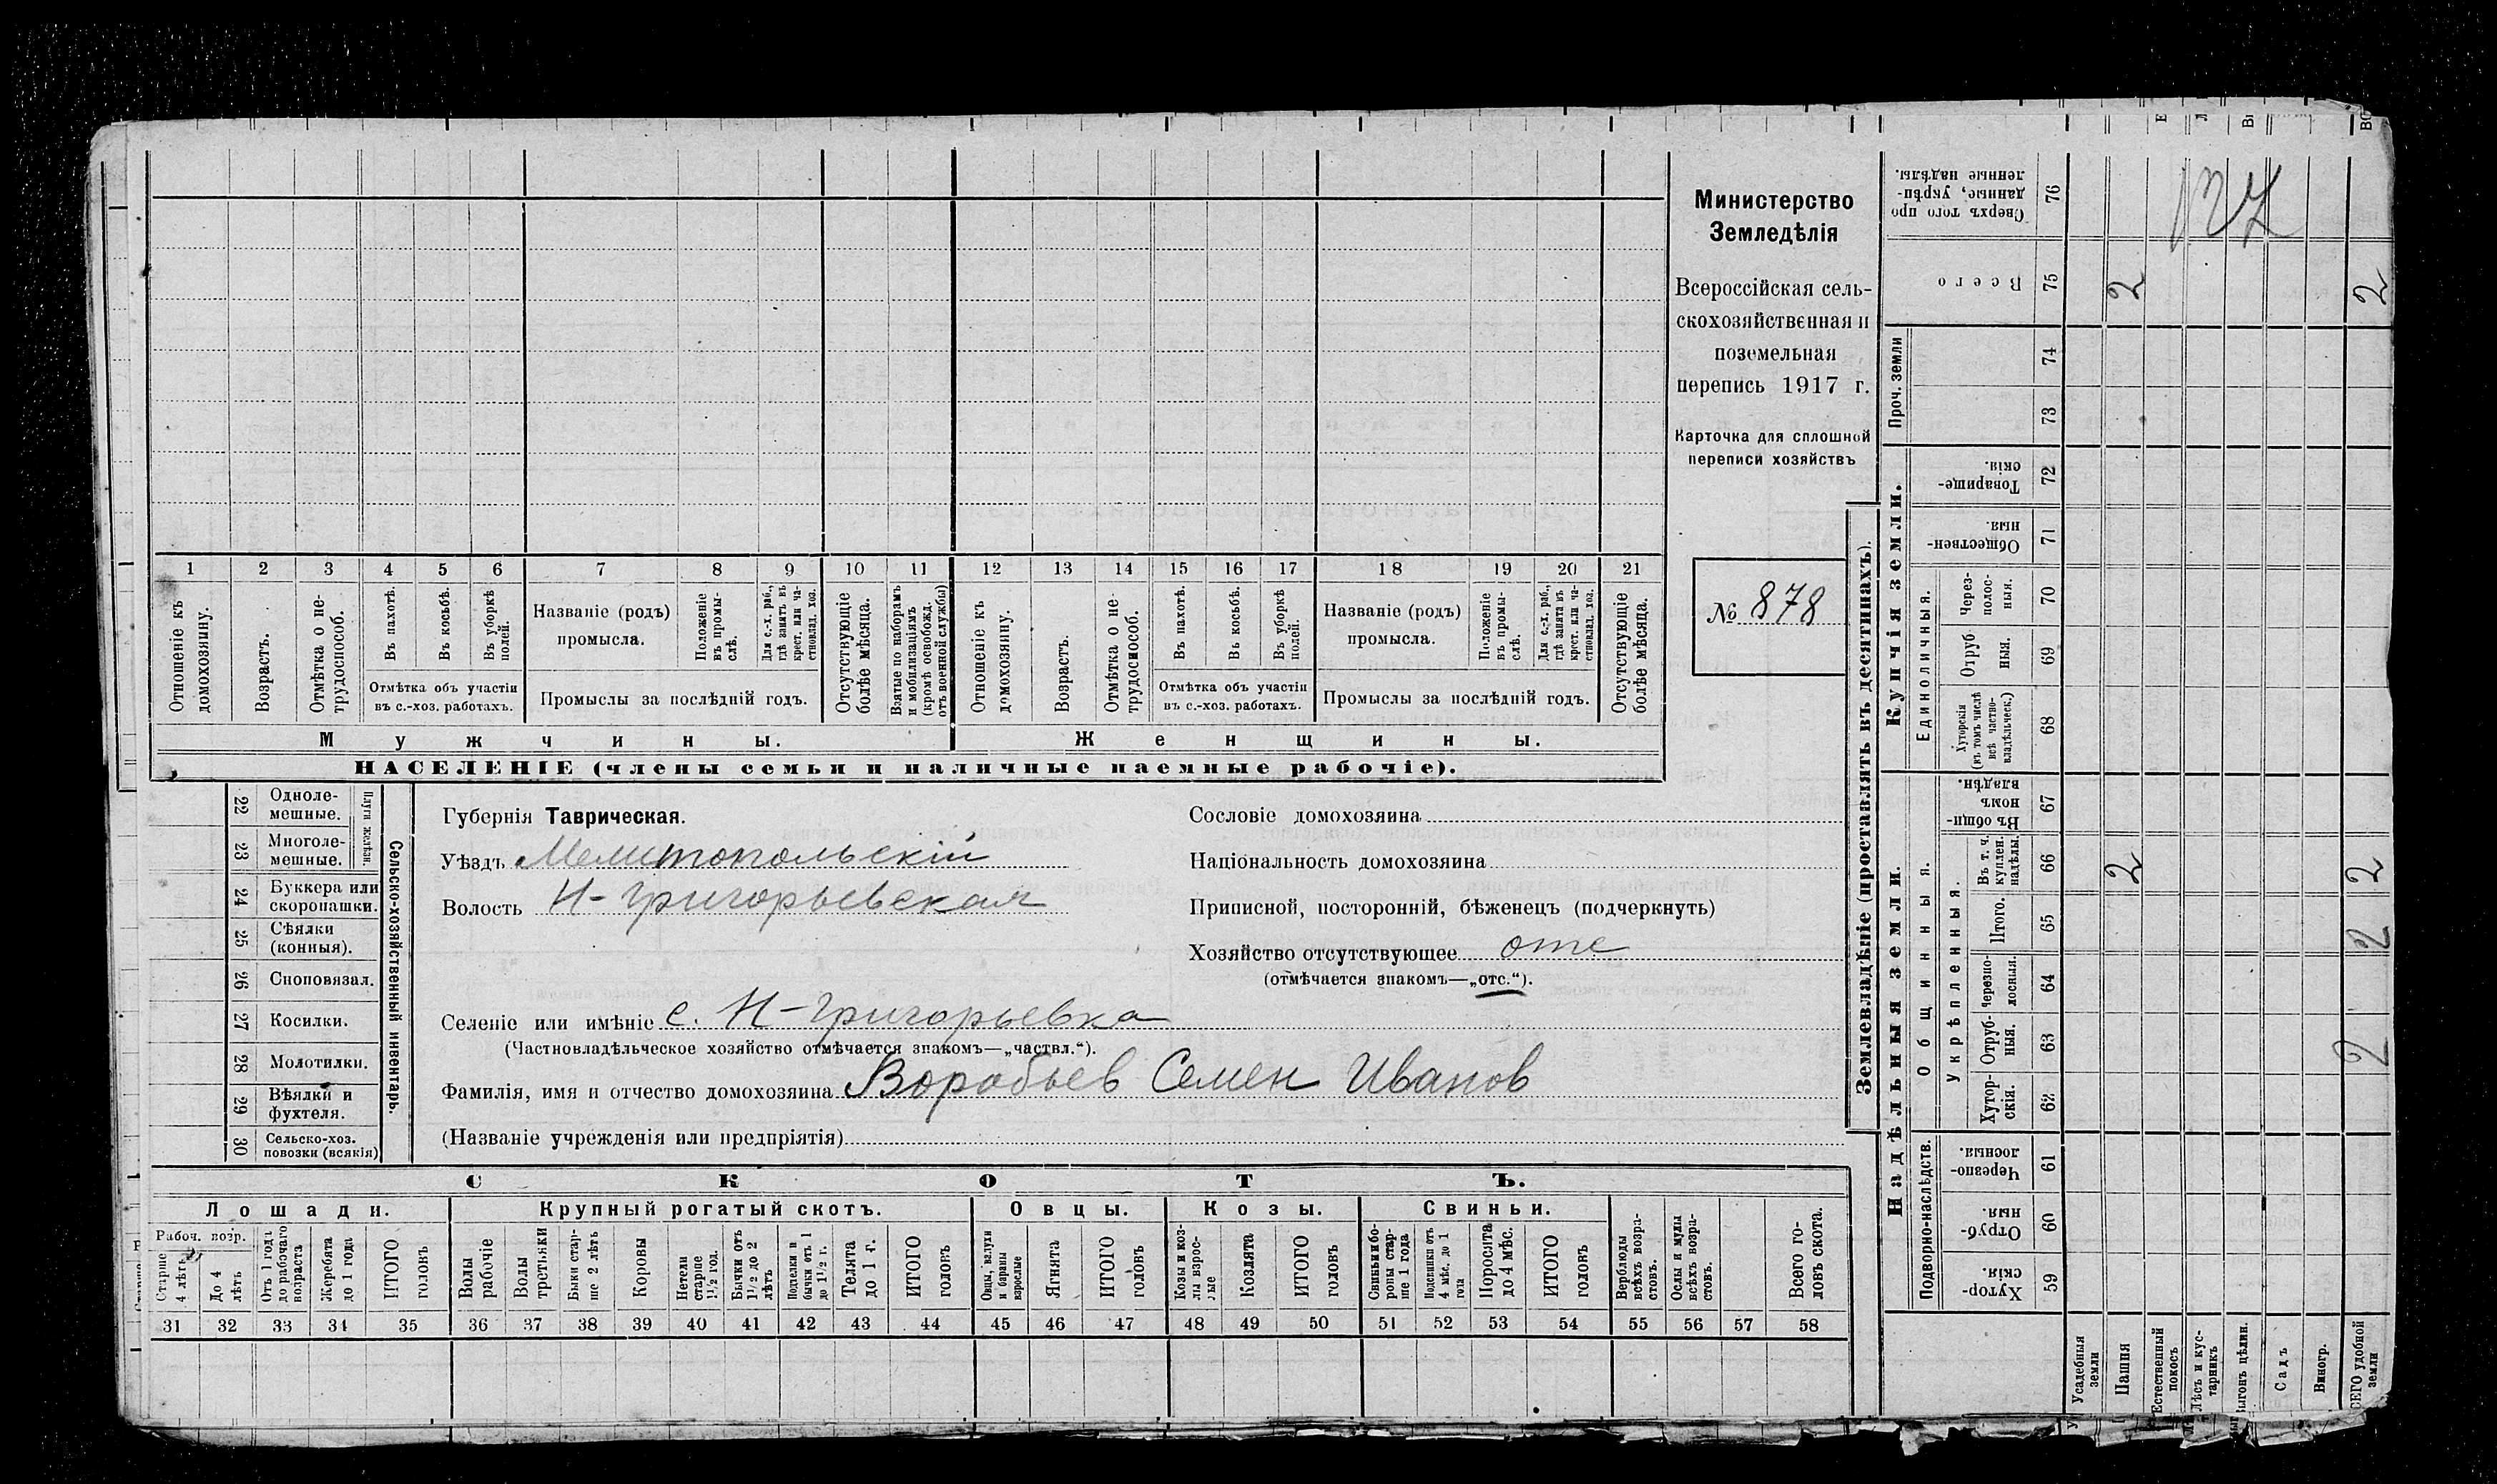 Министерство
Земледѣлія
Всероссійская сель-
скохозяйственная и
поземельная
перепись 1917 г.
Карточка для сплошной
переписи хозяйствъ
№ 878
1 2 3 4 5 6 7 8 9 10 11 12 13 14 15 16 17 18 19 20 21
Отношеніе къ домохозяину.
Возрастъ.
Отмѣтка о не-трудоспособ.
Въ пахотѣ.
Въ косьбѣ.
Въ уборкѣ полей.
Отмѣтка объ участіи
въ с.-хоз. работахъ.
Названіе (родъ)
промысла.
Положеніе въ промы-слѣ.
Для с.-х. раб., гдѣ занятъ въ крест. или ча-стновлад. хоз.
Промыслы за послѣдній годъ.
Отсутствующіе болѣе мѣсяца.
Взятые по наборамъ и мобилизаціямъ (кромѣ освобожд. отъ военной службы)
Отношеніе къ домохозяину.
Возрастъ.
Отмѣтка о не-трудоспособ.
Въ пахотѣ.
Въ косьбѣ.
Въ уборкѣ полей.
Отмѣтка объ участіи
въ с.-хоз. работахъ.
Названіе (родъ)
промысла.
Положеніе въ промы-слѣ.
Для с.-х. раб., гдѣ занята въ крест. или ча-стновлад. хоз.
Промыслы за послѣдній годъ.
Отсутствующіе болѣе мѣсяца.
Мужчины.
Женщины.
НАСЕЛЕНІЕ (члены семьи и наличные наемные рабочіе).
Сельско-хозяйственный инвентарь.
Плуги желѣзн.
22 Одноле-мешные.
23 Многоле-мешные.
24 Буккера или скоропашки.
25 Сѣялки (конныя).
26 Сноповязал.
27 Косилки.
28 Молотилки.
29 Вѣялки и фухтеля.
30 Сельско-хоз. повозки (всякія)
Губернія Таврическая.
Уѣздъ Мелитопольскій
Волость Н-Григорьевская
Сословіе домохозяина
Національность домохозяина
Приписной, посторонній, бѣженецъ (подчеркнуть)
Хозяйство отсутствующее отс
(отмѣчается знакомъ—„отс.“).
Селеніе или имѣніе с. Н-Григорьевка
(Частновладѣльческое хозяйство отмѣчается знакомъ—„частвл.“).
Фамилія, имя и отчество домохозяина Воробьев Семен Иванов
(Названіе учрежденія или предпріятія)
СКОТЪ.
Лошади.
Крупный рогатый скотъ.
Овцы.
Козы.
Свиньи.
Рабоч. возр.
Старше 4 лѣтъ
До 4 лѣтъ
Отъ 1 года до рабочаго возраста
Жеребята до 1 года
ИТОГО головъ
Волы рабочіе
Волы третьяки
Быки стар-ше 2 лѣтъ
Коровы
Нетели старше 1½ год.
Бычки отъ 1½ до 2 лѣтъ
Подтелки и бычки отъ 1 до 1½ г.
Телята до 1 г.
ИТОГО головъ
Овцы, валухи и бараны взрослые
Ягнята
ИТОГО головъ
Козы и коз-лы взрос-лые
Козлята
ИТОГО головъ
Свиньи и бо-ровы стар-ше 1 года
Подсвинки отъ 4 мѣс. до 1 года
Поросята до 4 мѣс.
ИТОГО головъ
Верблюды всѣхъ возра-стовъ.
Ослы и мулы всѣхъ возра-стовъ.
Всего го-ловъ скота.
31 32 33 34 35 36 37 38 39 40 41 42 43 44 45 46 47 48 49 50 51 52 53 54 55 56 57 58
Землевладѣніе (проставлять въ десятинахъ).
Надѣльныя земли.
Купчія земли.
Проч. земли
Подворно-наслѣдств.
Общинныя.
Укрѣпленныя.
Единоличныя.
Хутор-скія. 59
Отруб-ныя. 60
Черезпо-лосныя. 61
Хутор-скія. 62
Отруб-ныя. 63
Черезпо-лосныя. 64
Итого. 65
Въ т. ч. куплен. надѣлы. 66
Въ общи-номъ владѣн. 67
Хуторскія (въ томъ числѣ всѣ частно-владѣльческ.) 68
Отруб-ныя. 69
Через-полос-ныя. 70
Обществен-ныя. 71
Товарище-скія. 72
73
74
Всего 75
Сверхъ того про-данные, укрѣп-ленные надѣлы. 76
Усадебныя земли
Пашня 2 2
Естественный покосъ
Лѣсъ и кус-тарникъ
Выгонъ цѣлин.
Садъ
Виногр.
ВСЕГО удобной земли 2 2 2 2